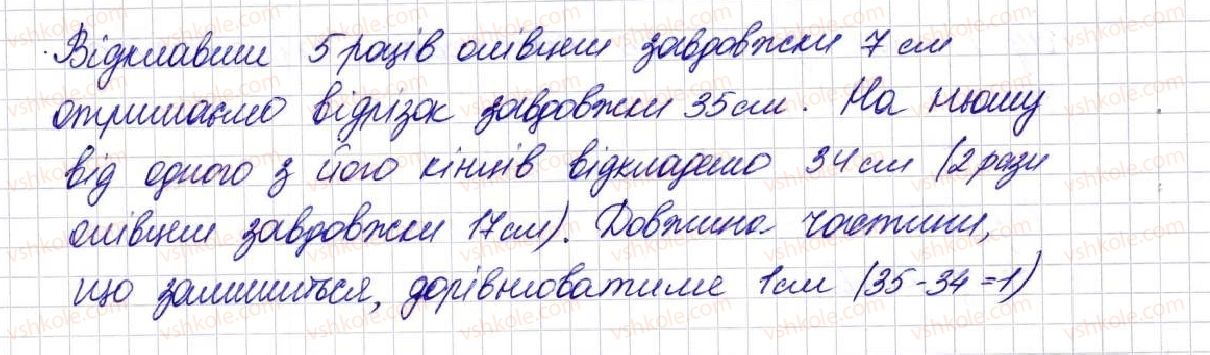 Відклавши 5 раців олівцем завдовжки 7 см
отримаємо відрізок завдовжки 35 см. На ньому
від одного з його кінців відкладемо 34 см (2 рази
олівцем завдовжки 17 см). Довжина частини,
що залишиться, дорівнюватиме 1 см (35 - 34 = 1)